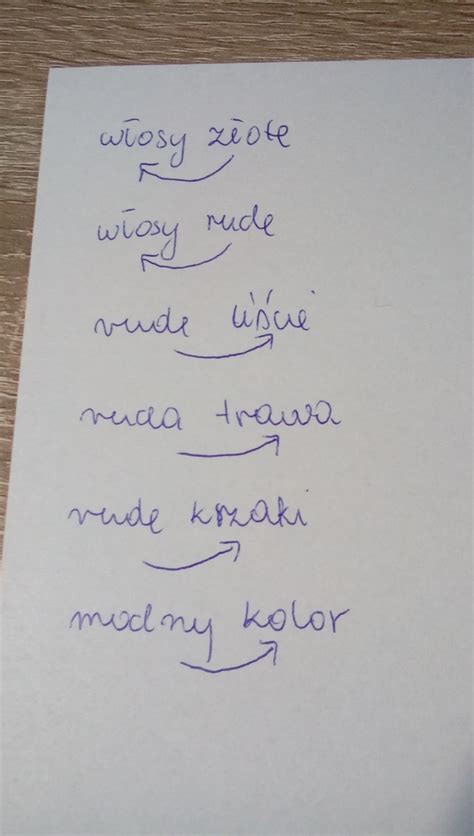 włosy złote
włosy rude
rude liście
ruda trawa
rude kszaki
modny kolor